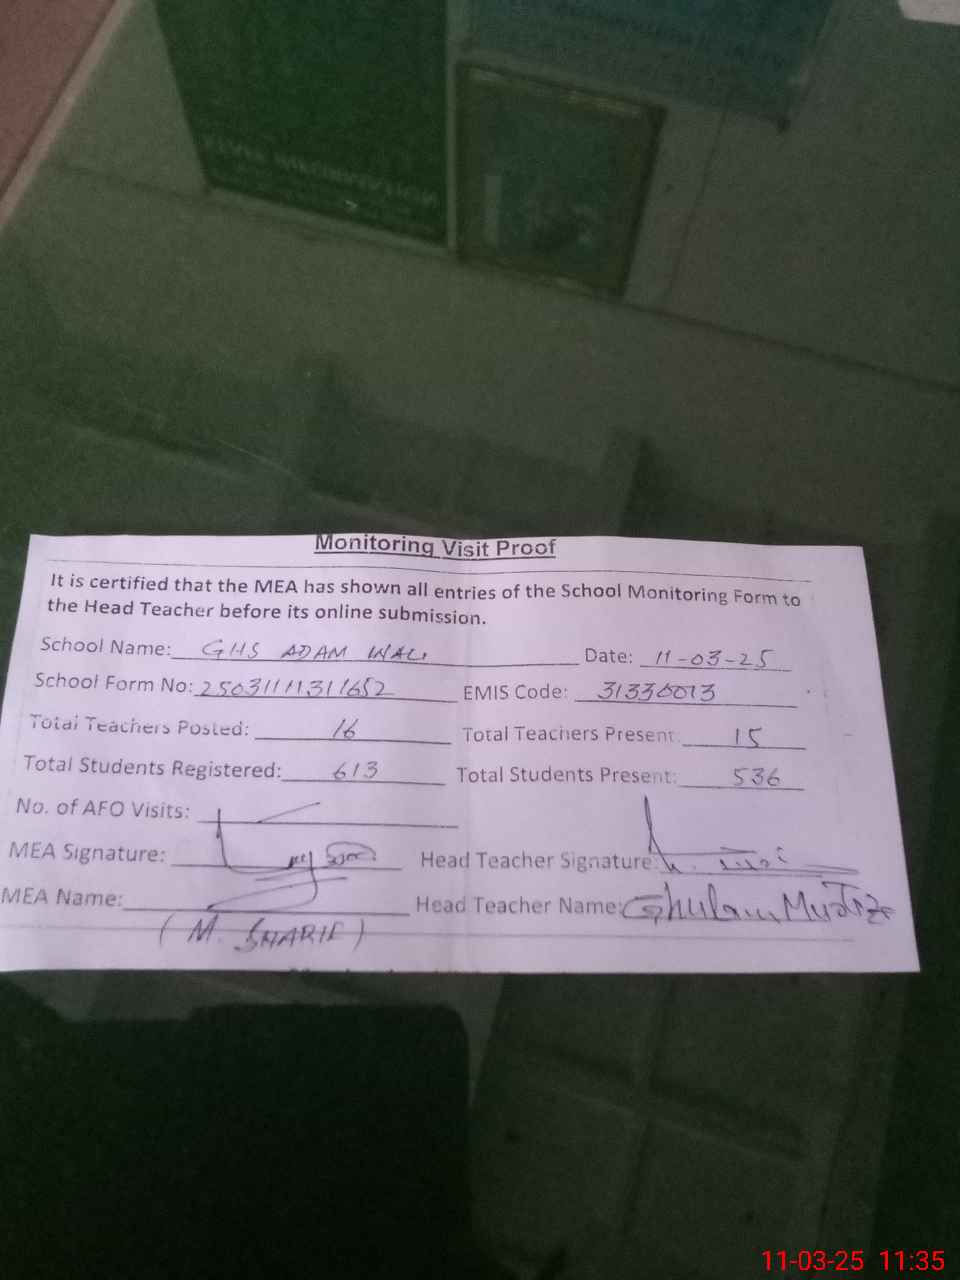 Monitoring Visit Proof
It is certified that the MEA has shown all entries of the School Monitoring Form to
the Head Teacher before its online submission.
School Name: GHS ADAM WALI Date: 11-03-25
School Form No: 25031111311652 EMIS Code: 31330013
Total Teachers Posted: 16 Total Teachers Present: 15
Total Students Registered: 613 Total Students Present: 536
No. of AFO Visits:
MEA Signature: Head Teacher Signature:
MEA Name: Head Teacher Name: Ghulam Murtaza
(M. SHARIF)
11-03-25 11:35